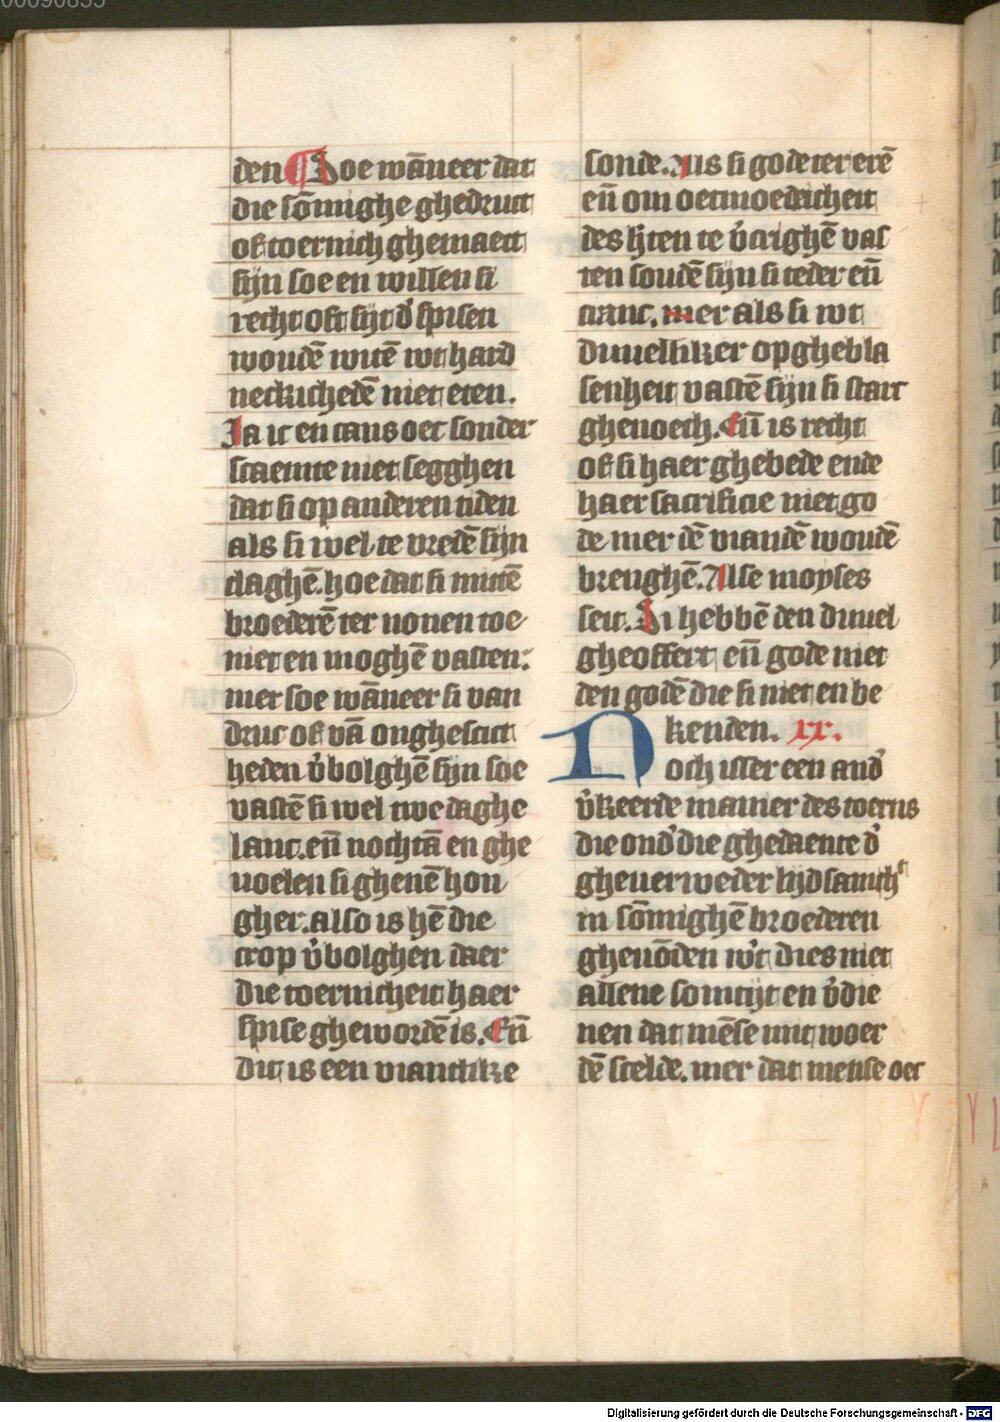 00090855
den ¶ Soe wāneer dat
die sōmighe ghedruct
of toernich ghemaect
sijn soe en willen si
recht oft sijt d' spisen
woudē witē wt hard
neckichedē niet eten.
Ja ic en caus oec sonder
scaemte niet segghen
dat si op anderen tiden
als si wel te vredē sijn
claghē. hoe dat si mittē
broederē ter nonen toe
niet en moghē vasten.
mer soe wāneer si van
druc of vā onghescict
heden v'bolghē sijn soe
vastē si wel twe daghe
lanc. eñ nochtā en ghe
uoelen si ghenē hon
gher. also is hē die
crop v'bolghen daer
die toernicheit haer
spise ghewordē is. Eñ
dit is een viantlike
sonde. Als si gode ter erē
eñ om oetmoedicheit
des h'ten te v'crighē vas
ten soudē sijn si teder eñ
cranc. mer als si wt
duuelliker opghebla
senheit vastē sijn si starc
ghenoech. Eñ is recht
of si haer ghebede ende
haer sacrificie niet go
de mer dē viandē woudē
brenghē. Alse moyses
seit. Si hebbē den duuel
gheoffert eñ gode niet
den godē die si niet en be
kenden. xx.
Noch isser een and'
v'keerde manier des toerns
die ond' die ghedaente d'
gheuerweder lijdsamh't
in sōmighē broederen
gheuōden w't dies niet
allene somtijt en v'die
nen dat mēse mit woer
dē scelde. mer dat mense oec
Digitalisierung gefördert durch die Deutsche Forschungsgemeinschaft - DFG